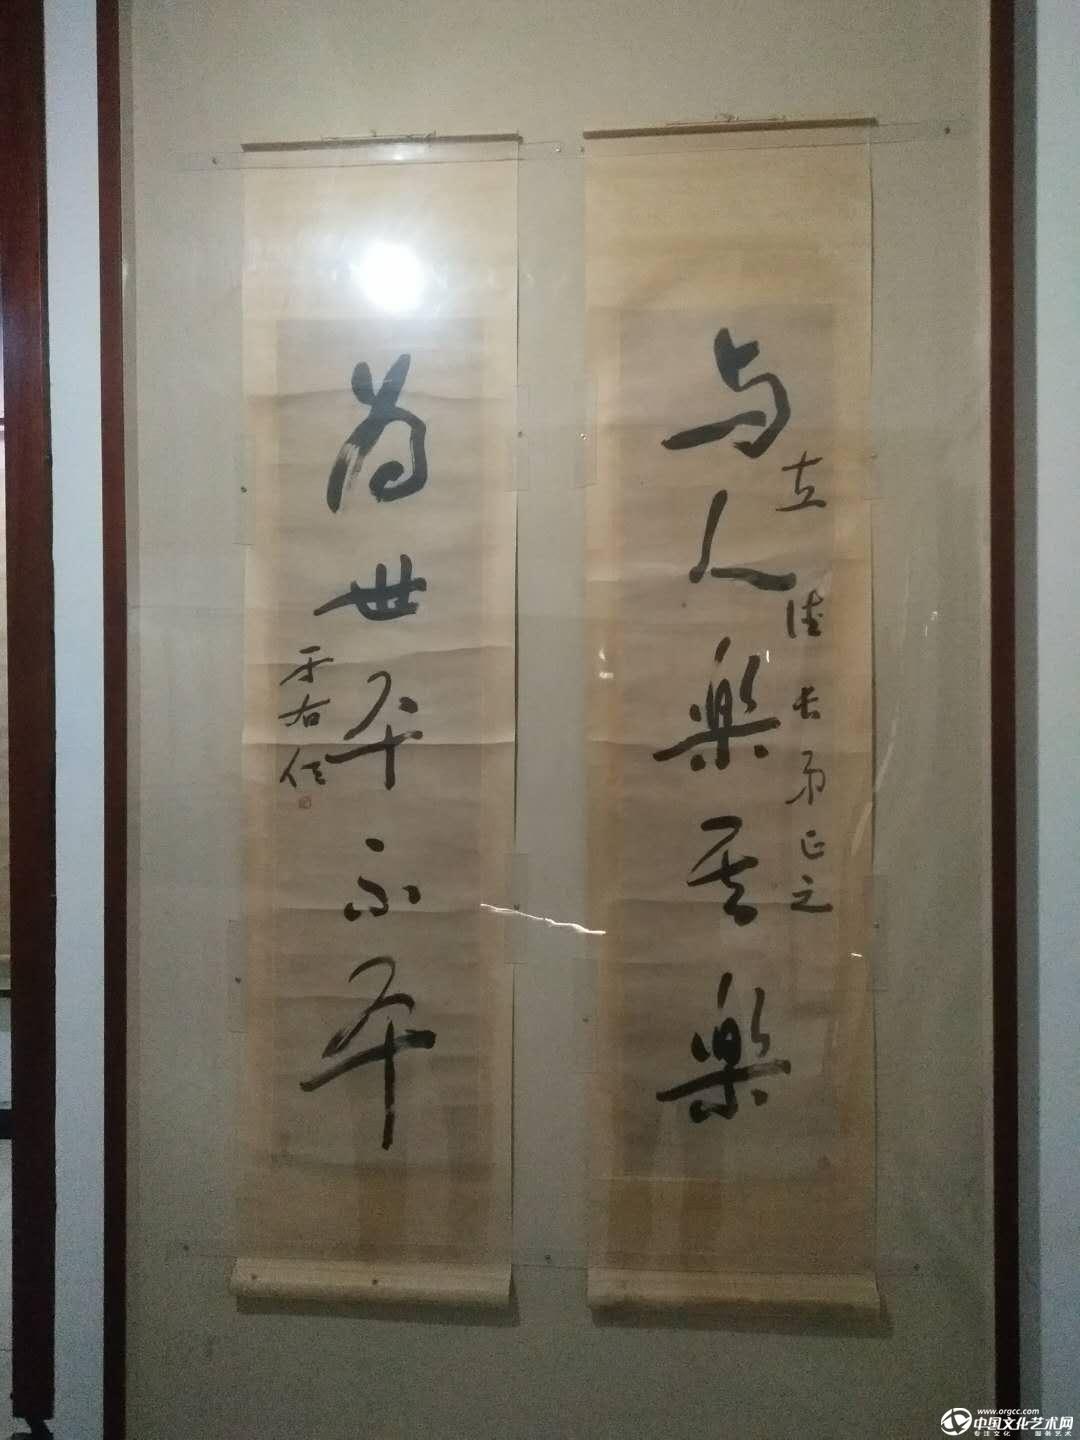 与人樂其樂
弟正之
为世平不平
于右任
www.orgcc.com
中国文化艺术网
专注文化 服务艺术